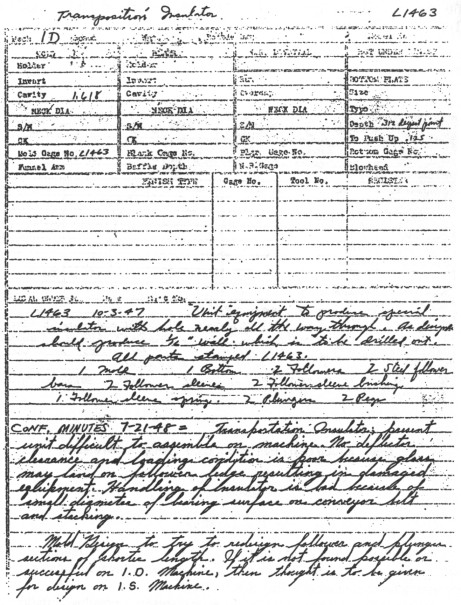 Transposition Insulator L1463
1D
Holder
Invert Invert BOTTOM PLATE
Cavity 1.618 Cavity Overday Size
NECK DIA NECK DIA NECK DIA Type
S/N S/N S/N Depth
GK GK GK To Push Up .125
Mold Gage No. L1463 Blank Gage No. Plgr. Gage No. Bottom Gage No.
Funnel Arm Baffle Depth N.R. Gage Blowhead
FINISH TYPE Gage No. Tool No.
L1463 10-3-47 Unit equipment to produce special
insulator with hole nearly all the way through. As designed
should produce 1/16" wall which is to be drilled out.
All parts stamped L1463.
1 Mold 1 Bottom 2 Followers 2 Steel follower
bars 2 Follower sleeves 2 Follower sleeve bushing
1 Follower sleeve spring. 2 Plungers 2 Rings
CONF. MINUTES 7-21-48 = Transportation Insulator; present
unit difficult to assemble on machine. No deflector
clearance and loading condition is poor because glass
may land on follower edge resulting in damaged
equipment. Handling of insulator is bad because of
small diameter of bearing surface on conveyor belt
and sticking.
Mold Design to try to redesign follower and plunger
sections of shorter length. If it is not found possible or
successful on I.D. Machine, then thought is to be given
for design on I.S. Machine.